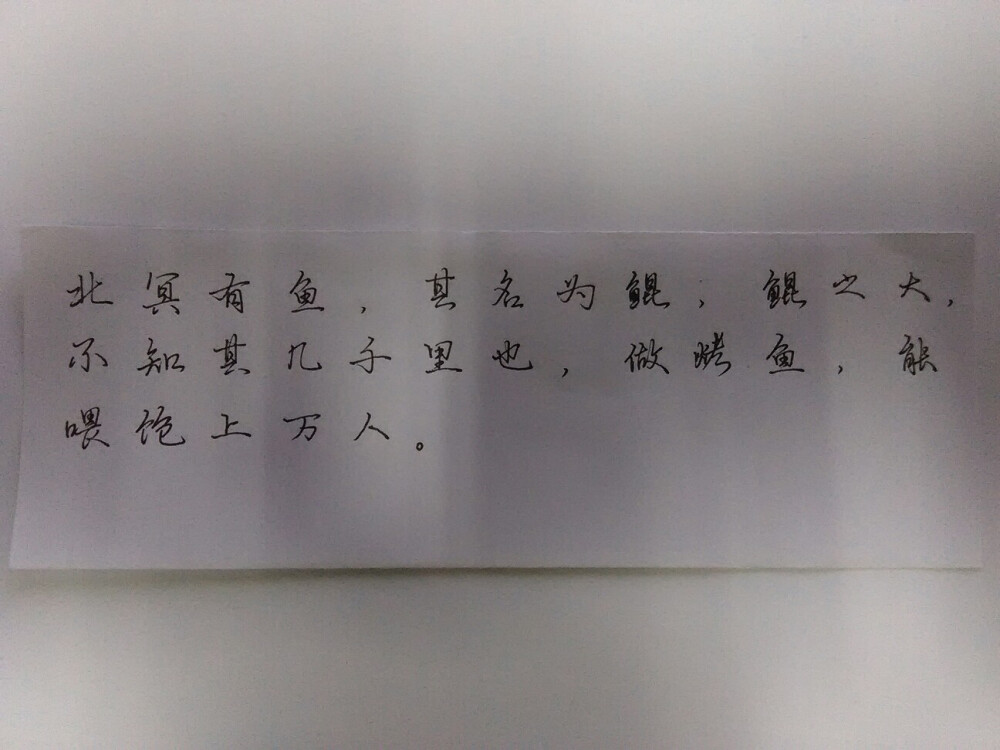 北冥有鱼，其名为鲲；鲲之大，
不知其几千里也，做烤鱼，能
喂饱上万人。